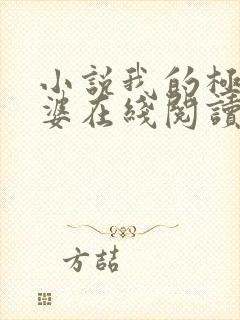 小說我的極
婆在綫閱讀
方喆